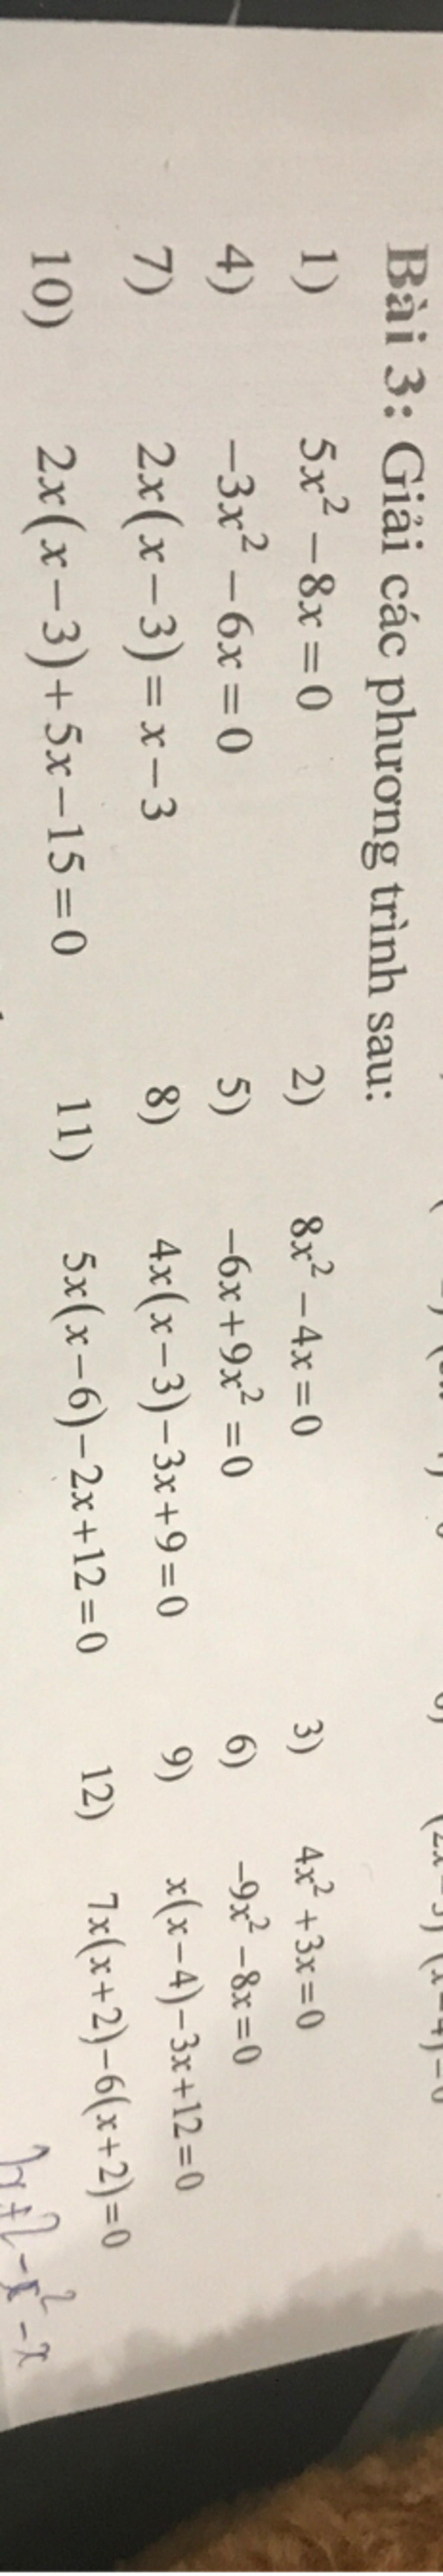 Bài 3: Giải các phương trình sau:
1) 5x² − 8x = 0 2) 8x² − 4x = 0 3) 4x² + 3x = 0
4) −3x² − 6x = 0 5) −6x + 9x² = 0 6) −9x² − 8x = 0
7) 2x(x − 3) = x − 3 8) 4x(x − 3) − 3x + 9 = 0 9) x(x − 4) − 3x + 12 = 0
10) 2x(x − 3) + 5x − 15 = 0 11) 5x(x − 6) − 2x + 12 = 0 12) 7x(x + 2) − 6(x + 2) = 0